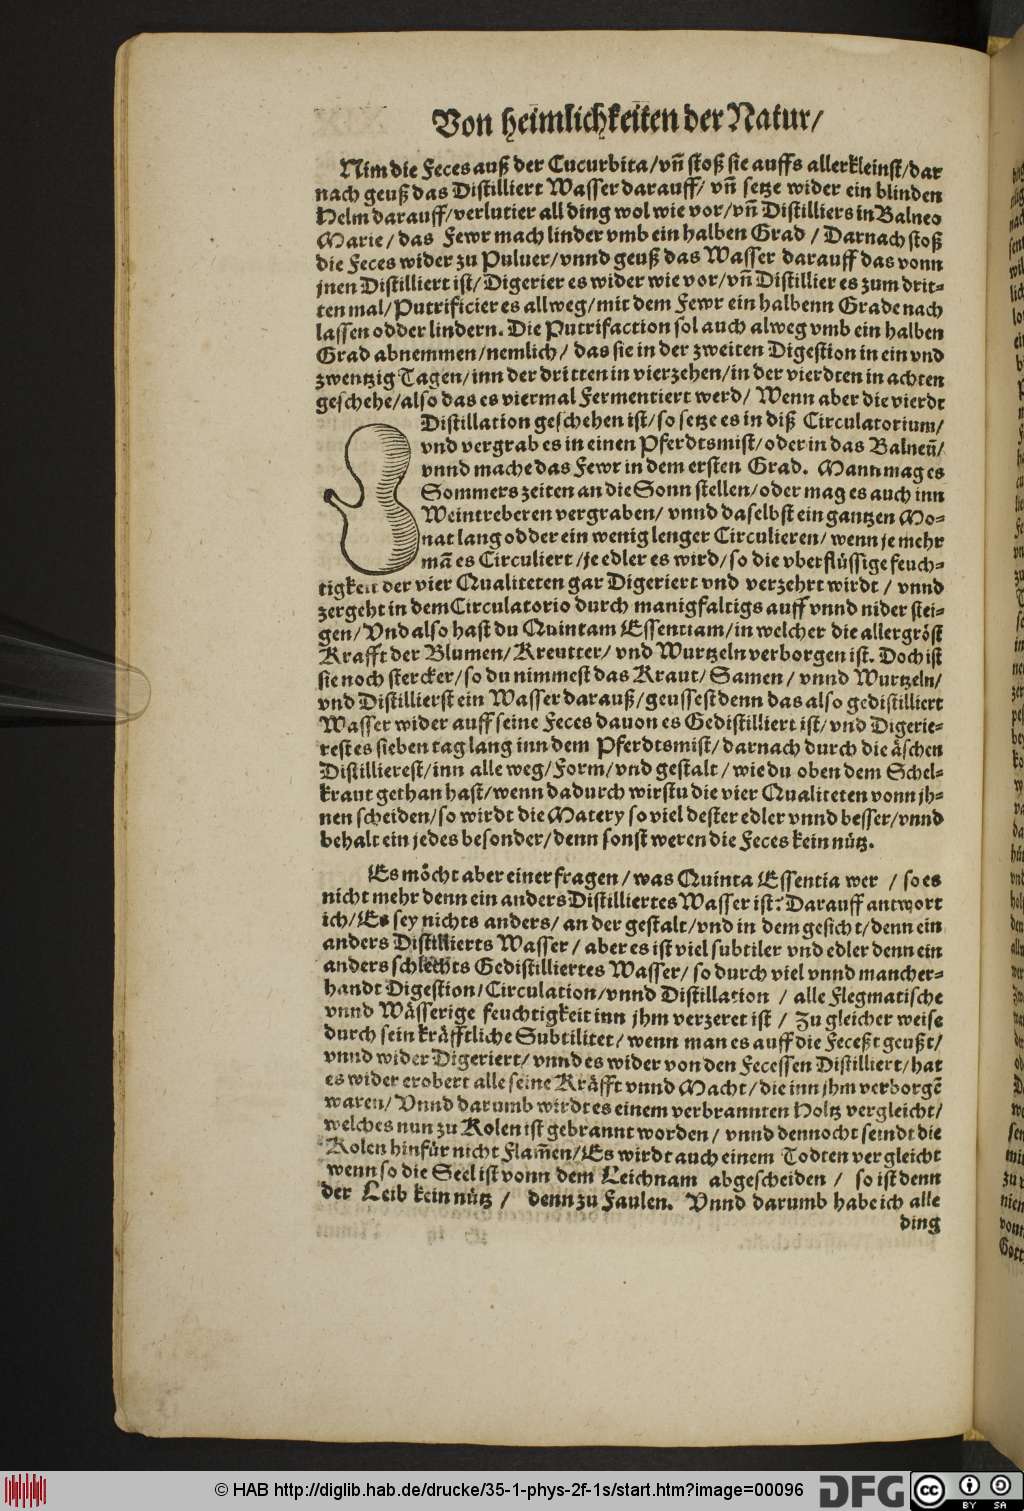 Von heimlichkeiten der Natur/
Nim die Feces auß der Cucurbita/vn̄ stoß sie auffs allerkleinst/dar
nach geuß das Distilliert Wasser darauff/ vn̄ setze wider ein blinden
Helm darauff/verlutier all ding wol wie vor/vn̄ Distilliers in Balneo
Marie/das Fewr mach linder vmb ein halben Grad / Darnach stoß
die Feces wider zu Puluer/vnnd geuß das Wasser darauff das vonn
jnen Distilliert ist/Digerier es wider wie vor/vn̄ Distillier es zum drit⸗
ten mal/Putrificier es allweg/mit dem Fewr ein halbenn Grade nach
lassen odder lindern. Die Putrifaction sol auch alweg vmb ein halben
Grad abnemmen/nemlich/ das sie in der zweiten Digestion in ein vnd
zwentzig Tagen/inn der dritten in vierzehen/in der vierdten in achten
geschehe/also das es viermal Fermentiert werd/ Wenn aber die vierdt
Distillation geschehen ist/so setze es in diß Circulatorium/
vnd vergrab es in einen Pferdtsmist/oder in das Balneū/
vnnd mache das Fewr in dem ersten Grad. Mann mag es
Sommers zeiten an die Sonn stellen/oder mag es auch inn
Weintreberen vergraben/ vnnd daselbst ein gantzen Mo⸗
nat lang odder ein wenig lenger Circulieren/ wenn je mehr
mā es Circuliert/je edler es wird/so die vberflüssige feuch⸗
tigkeit der vier Qualiteten gar Digeriert vnd verzehrt wirdt / vnnd
zergeht in dem Circulatorio durch manigfaltigs auff vnnd nider stei⸗
gen/Vnd also hast du Quintam Essentiam/in welcher die allergröst
Krafft der Blumen/Kreutter/ vnd Wurtzeln verborgen ist. Doch ist
sie noch stercker/so du nimmest das Kraut/Samen/ vnnd Wurtzeln/
vnd Distillierst ein Wasser darauß/geussest denn das also gedistilliert
Wasser wider auff seine Feces dauon es Gedistilliert ist/vnd Digerie⸗
rest es sieben tag lang inn dem Pferdtsmist/darnach durch die äschen
Distillierest/inn alle weg/Form/vnd gestalt/wie du oben dem Schel⸗
kraut gethan hast/wenn dadurch wirstu die vier Qualiteten vonn jh⸗
nen scheiden/so wirdt die Matery so viel dester edler vnnd besser/vnnd
behalt ein jedes besonder/denn sonst weren die Feces kein nütz.
Es möcht aber einer fragen/was Quinta Essentia wer / so es
nicht mehr denn ein anders Distilliertes Wasser ist? Darauff antwort
ich/Es sey nichts anders/an der gestalt/vnd in dem gesicht/denn ein
anders Distillierts Wasser/ aber es ist viel subtiler vnd edler denn ein
anders schlechts Gedistilliertes Wasser/ so durch viel vnnd mancher⸗
handt Digestion/Circulation/vnnd Distillation / alle Flegmatische
vnnd Wässerige feuchtigkeit inn jhm verzeret ist / Zu gleicher weise
durch sein kräfftliche Subtilitet/wenn man es auff die Feceßt geußt/
vnnd wider Digeriert/vnnd es wider von den Fecessen Distilliert/hat
es wider erobert alle seine Kräfft vnnd Macht/die inn jhm verborgē
waren/Vnnd darumb wirdt es einem verbrannten Holtz vergleicht/
welches nun zu Kolen ist gebrannt worden/ vnnd dennocht seindt die
Kolen hinfür nicht Flam̄en/Es wirdt auch einem Todten vergleicht
wenn so die Seel ist vonn dem Leichnam abgescheiden / so ist denn
der Leib kein nütz / denn zu Faulen. Vnnd darumb habe ich alle
ding
© HAB http://diglib.hab.de/drucke/35-1-phys-2f-1s/start.htm?image=00096
DFG
cc
BY SA